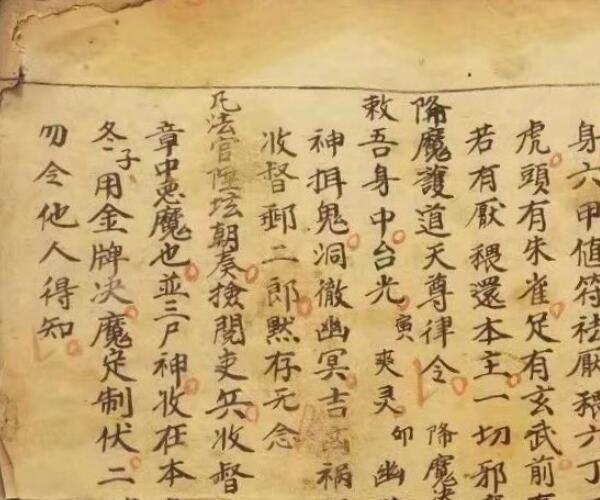 身六甲值符祛厭穢六丁
虎頭有朱雀足有玄武前
若有厭穢還本主一切邪
降魔護道天尊律令 降魔
敕吾身中台光 寅 爽灵 卯 幽
神揖鬼洞徹幽冥吉凶禍
收督郵二郎默存元念
凡法官陞坛朝奏撿閱吏兵收督
章中惡魔也並三尸神收在本
冬子用金牌决魔定制伏二
勿令他人得知